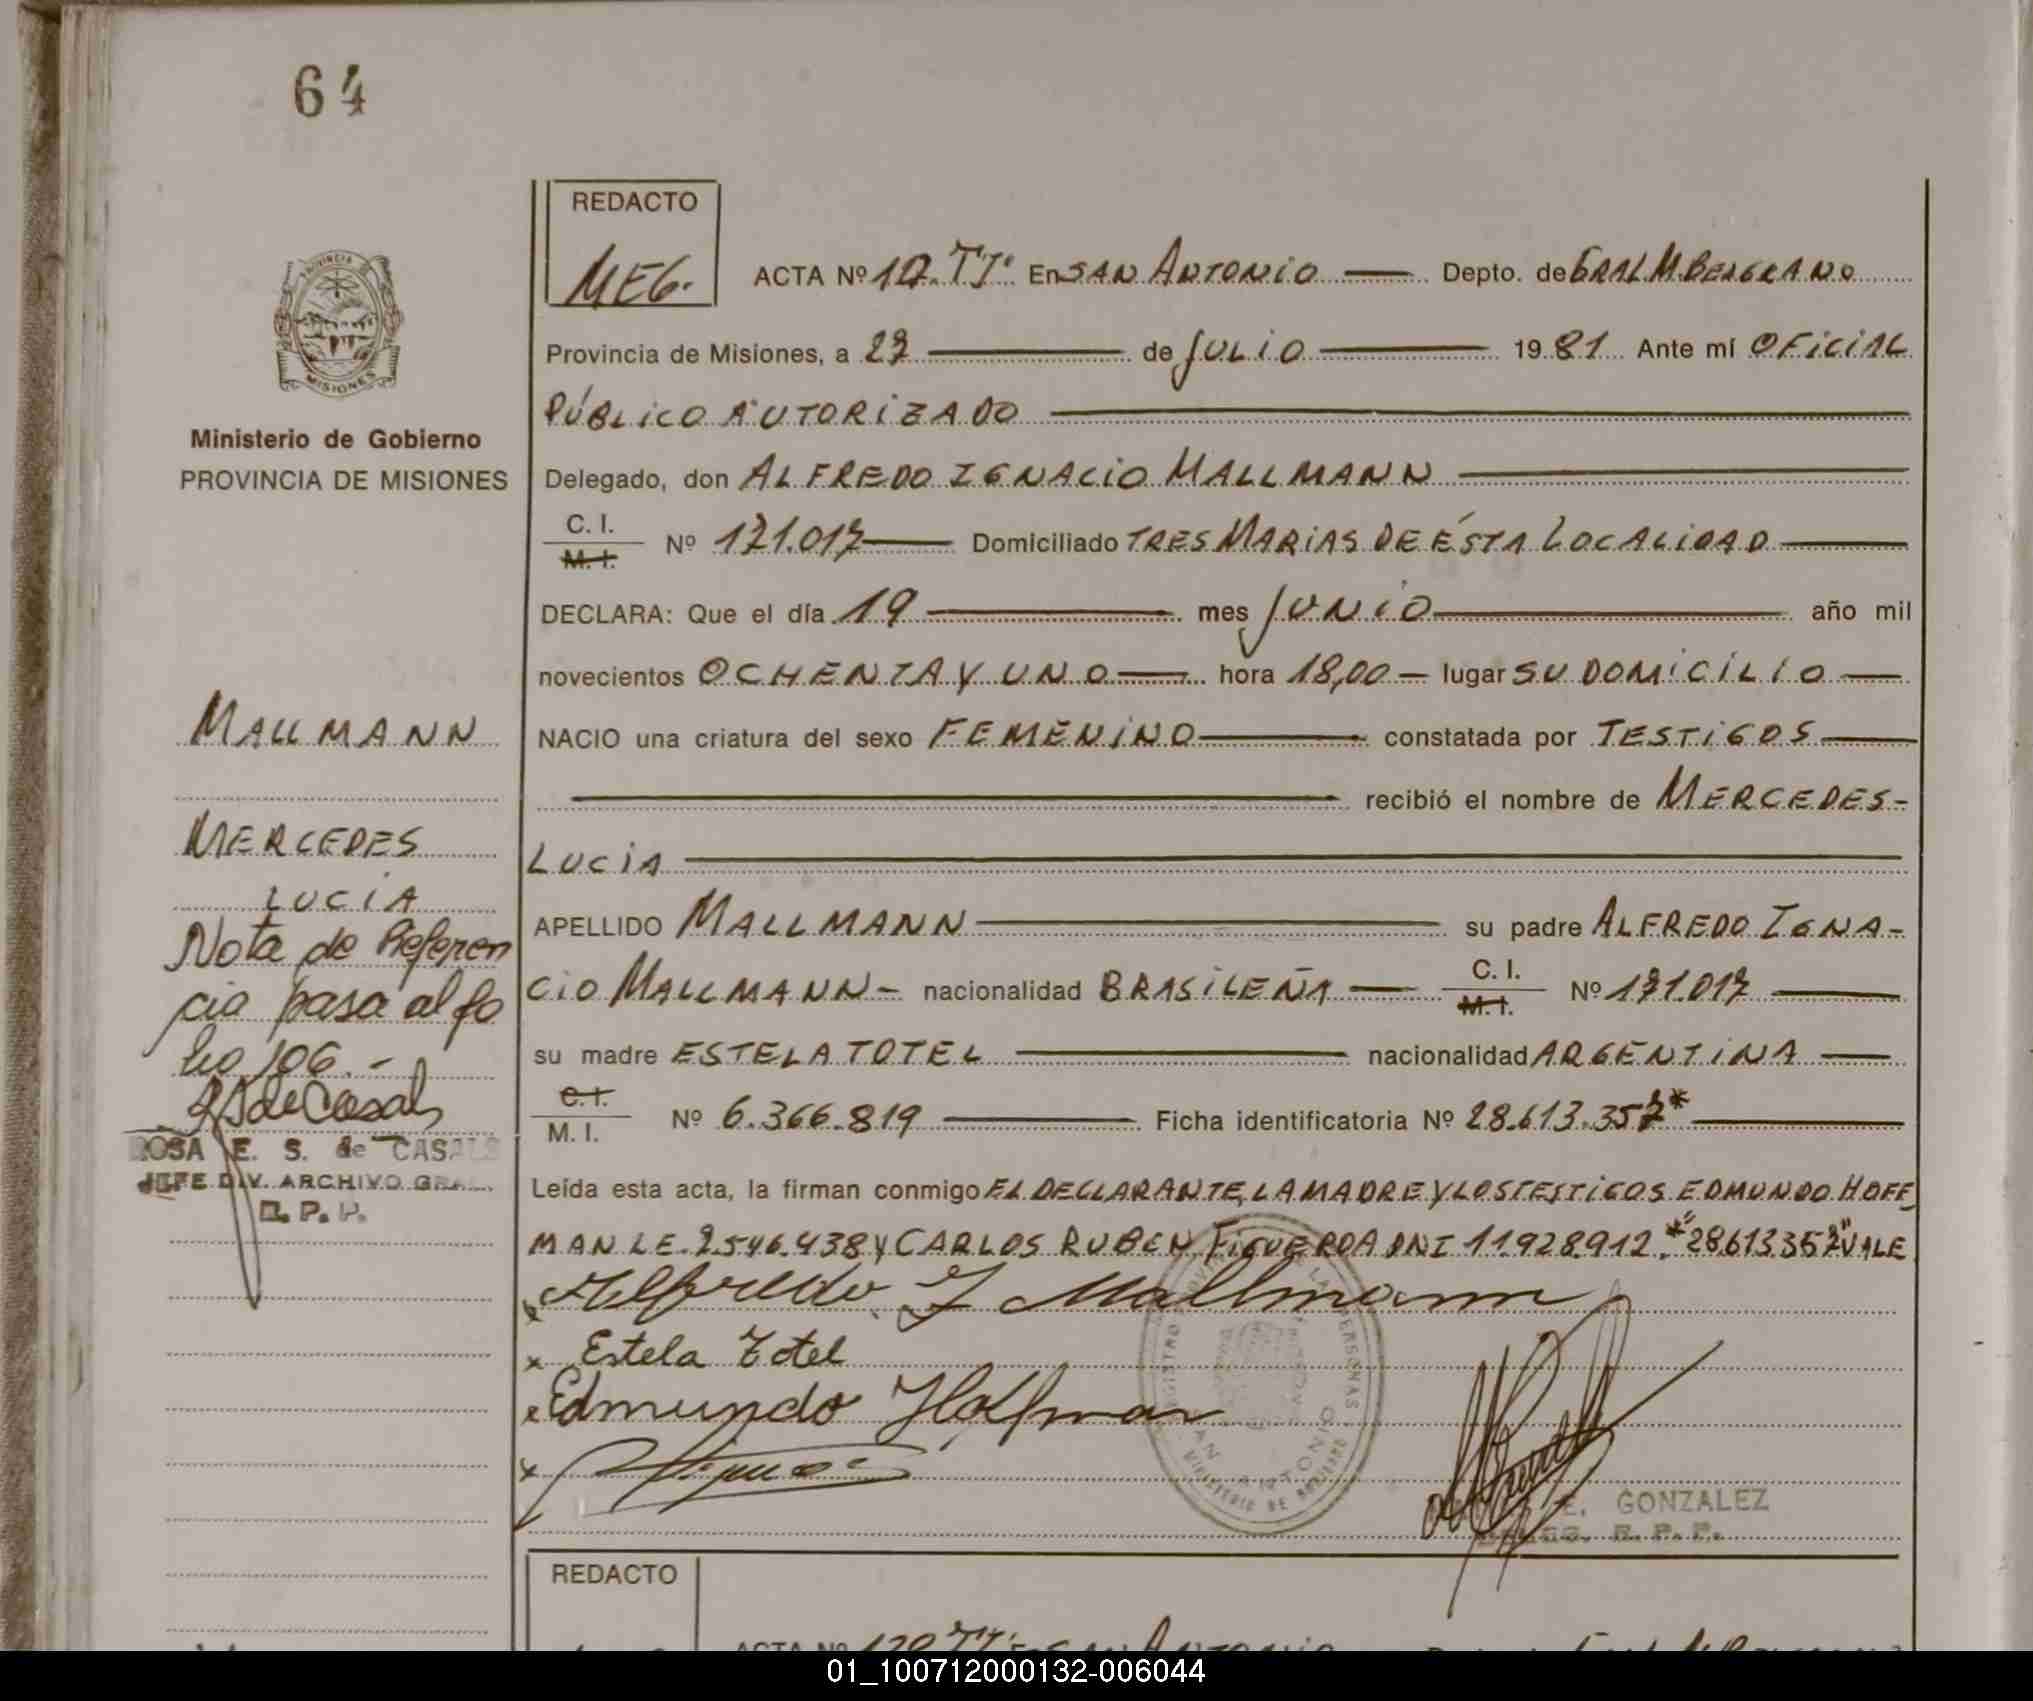 64
REDACTO
MEG.
ACTA Nº TIº En SAN ANTONIO Depto. de GRAL M. BERGRANO
PROVINCIA DE
MISIONES
Provincia de Misiones, a 27 de JULIO 1981 Ante mí OFICIAL
PÚBLICO AUTORIZADO
Ministerio de Gobierno
PROVINCIA DE MISIONES
Delegado, don ALFREDO IGNACIO MALLMANN
C. I.
M. I.
Nº 171.017 Domiciliado TRES MARIAS DE ÉSTA LOCALIDAD
DECLARA: Que el día 19 mes JUNIO año mil
novecientos OCHENTA Y UNO hora 18,00 — lugar SU DOMICILIO
NACIO una criatura del sexo FEMENINO constatada por TESTIGOS
recibió el nombre de MERCEDES-
LUCIA
APELLIDO MALLMANN su padre ALFREDO IGNA-
CIO MALLMANN - nacionalidad BRASILEÑA C. I.
M. I.
Nº 171.017
su madre ESTELA TOTEL nacionalidad ARGENTINA
C. I.
M. I.
Nº 6.366.819 Ficha identificatoria Nº 28.613.357*
Leída esta acta, la firman conmigo EL DECLARANTE, LA MADRE Y LOS TESTIGOS EDMUNDO HOFF
MAN LE. 2.546.438 Y CARLOS RUBEN FIGUEROA DNI 11.928.912. *"28.613.357" VALE
x Alfredo I Mallmann
x Estela Totel
x Edmundo Hoffman
x
MALLMANN
MERCEDES
LUCIA
Nota de Referen
cia pasa al fo
lio 106.-
RSdeCasals
ROSA E. S. de CASALS
JEFE DIV. ARCHIVO GRAL.
R. P. P.
SAN ANTONIO
MINISTERIO DE GOBIERNO
E. GONZALEZ
R. P. P.
REDACTO
ACTA Nº 120 TIº En SAN ANTONIO
01_100712000132-006044